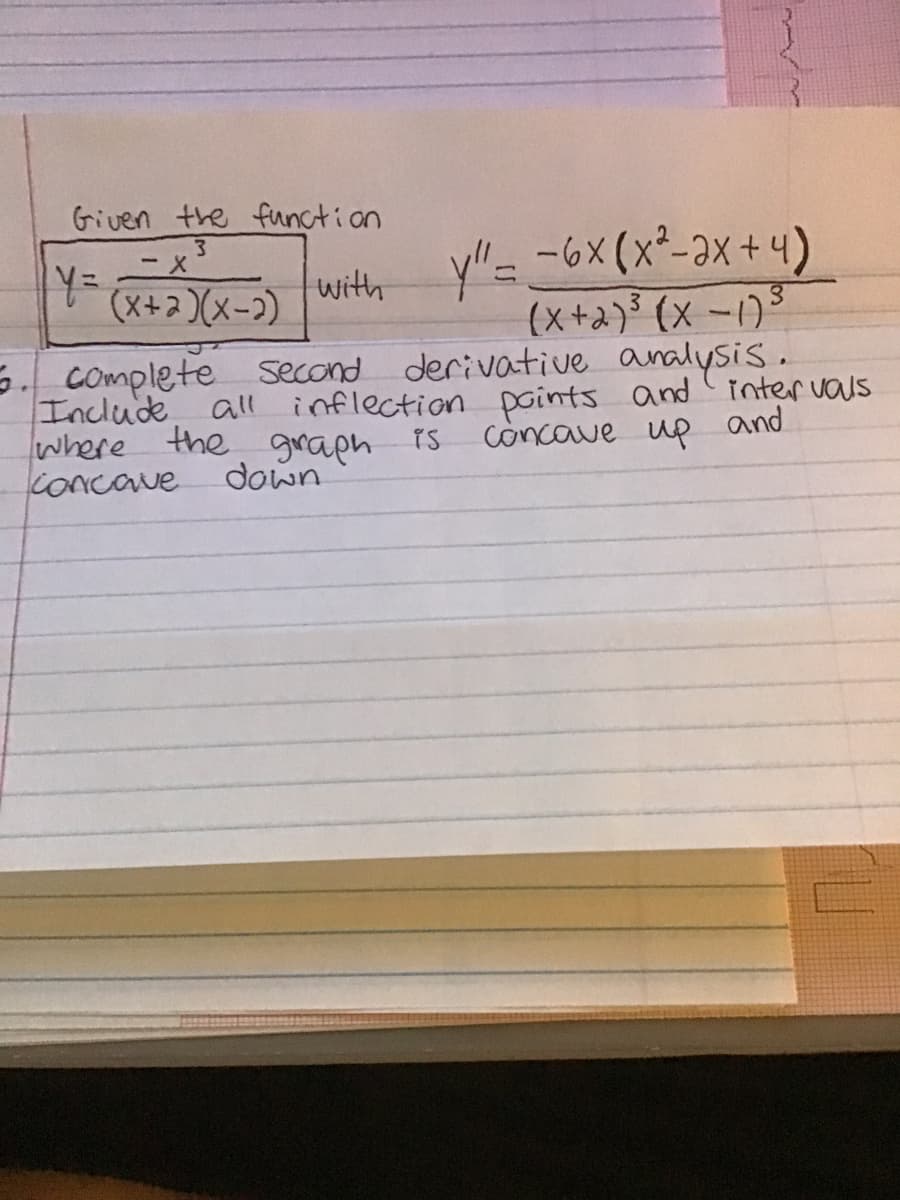 Given the function
y = -x³ / (x+2)(x-2) with y'' = -6x(x²-2x+4) / (x+2)³ (x-1)³
6. complete second derivative analysis.
Include all inflection points and intervals
where the graph is concave up and
concave down